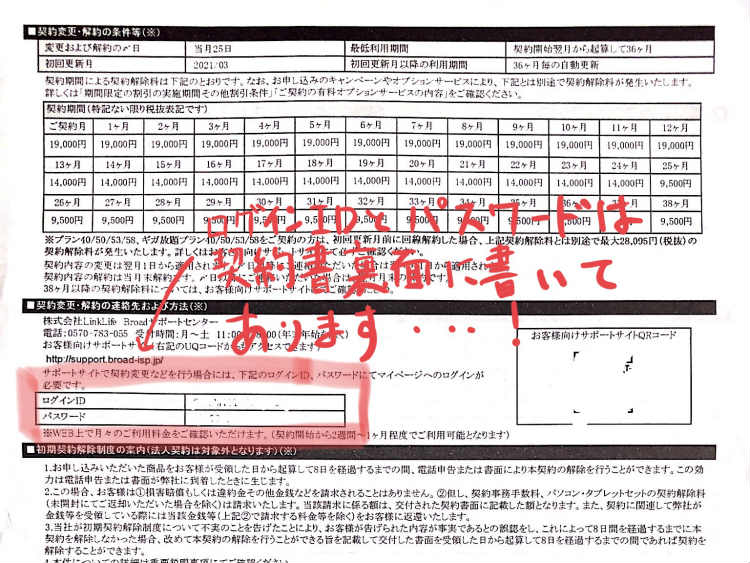 ■契約変更・解約の条件等(※)
変更および解約の〆日 当月25日 最低利用期間 契約開始翌月から起算して36ヶ月
初回更新月 2021/03 初回更新月以降の利用期間 36ヶ月毎の自動更新
契約期間による契約解除料は下記のとおりです。なお、お申し込みのキャンペーンやオプションサービスにより、下記とは別途で契約解除料が発生いたします。
詳しくは「期間限定の割引の実施期間その他割引条件」「ご契約の有料オプションサービスの内容」をご確認ください。
契約期間(特記ない限り税抜表記です)
ご契約月 1ヶ月 2ヶ月 3ヶ月 4ヶ月 5ヶ月 6ヶ月 7ヶ月 8ヶ月 9ヶ月 10ヶ月 11ヶ月 12ヶ月
19,000円 19,000円 19,000円 19,000円 19,000円 19,000円 19,000円 19,000円 19,000円 19,000円 19,000円 19,000円 19,000円
13ヶ月 14ヶ月 15ヶ月 16ヶ月 17ヶ月 18ヶ月 19ヶ月 20ヶ月 21ヶ月 22ヶ月 23ヶ月 24ヶ月 25ヶ月
14,000円 14,000円 14,000円 14,000円 14,000円 14,000円 14,000円 14,000円 14,000円 14,000円 14,000円 14,000円 9,500円
26ヶ月 27ヶ月 28ヶ月 29ヶ月 30ヶ月 31ヶ月 38ヶ月
9,500円 9,500円 9,500円 9,500円 9,500円 9,500円 9,500円
ログインIDとパスワードは
契約書裏面に書いて
あります・・・!
※プラン40/50/53/58、ギガ放題プラン40/50/53/58をご契約の方は、初回更新月前に回線解約した場合、上記契約解除料とは別途で最大28,095円(税抜)の
契約解除料が発生いたします。詳しくは
契約内容の変更は翌月1日から適用され
契約内容の解約は当月末解約です。
38ヶ月以降の契約解除料については、お客様向けサポートサイト
■契約変更・解約の連絡先および方法(※)
株式会社LinkLife Broadサポートセンター
電話:0570-783-055 受付時間:月～土 11:00
お客様向けサポートサイト(右記のUQコードからもアクセスできます)
http://support.broad-isp.jp/
サポートサイトで契約変更などを行う場合には、下記のログインID、パスワードにてマイページへのログインが
必要です。
ログインID
パスワード
※WEB上で月々のご利用料金をご確認いただけます。(契約開始から2週間～1ヶ月程度でご利用可能となります)
お客様向けサポートサイトQRコード
■初期契約解除制度の案内(法人契約は対象外となります)(※)
1.お申し込みいただいた商品をお客様が受領した日から起算して8日を経過するまでの間、電話申告または書面により本契約の解除を行うことができます。この効
力は電話申告または書面が弊社に到着したときに生じます。
2.この場合、お客様は①損害賠償もしくは違約金その他金銭などを請求されることはありません。②但し、契約事務手数料、パソコン・タブレットセットの契約解除料
(未開封にてご返却いただいた場合を除く)は請求いたします。当該請求に係る額は、交付された契約書面に記載した額となります。また、契約に関連して弊社が
金銭等を受領している際には当該金銭等(上記②で請求する料金等を除く)をお客様に返還いたします。
3.当社が初期契約解除制度について不実のことを告げたことにより、お客様が告げられた内容が事実であるとの誤認をし、これによって8日間を経過するまでに本
契約を解除しなかった場合、改めて本契約の解除を行うことができる旨を記載して交付した書面を受領した日から起算して8日を経過するまでの間であれば契約を
解除することができます。